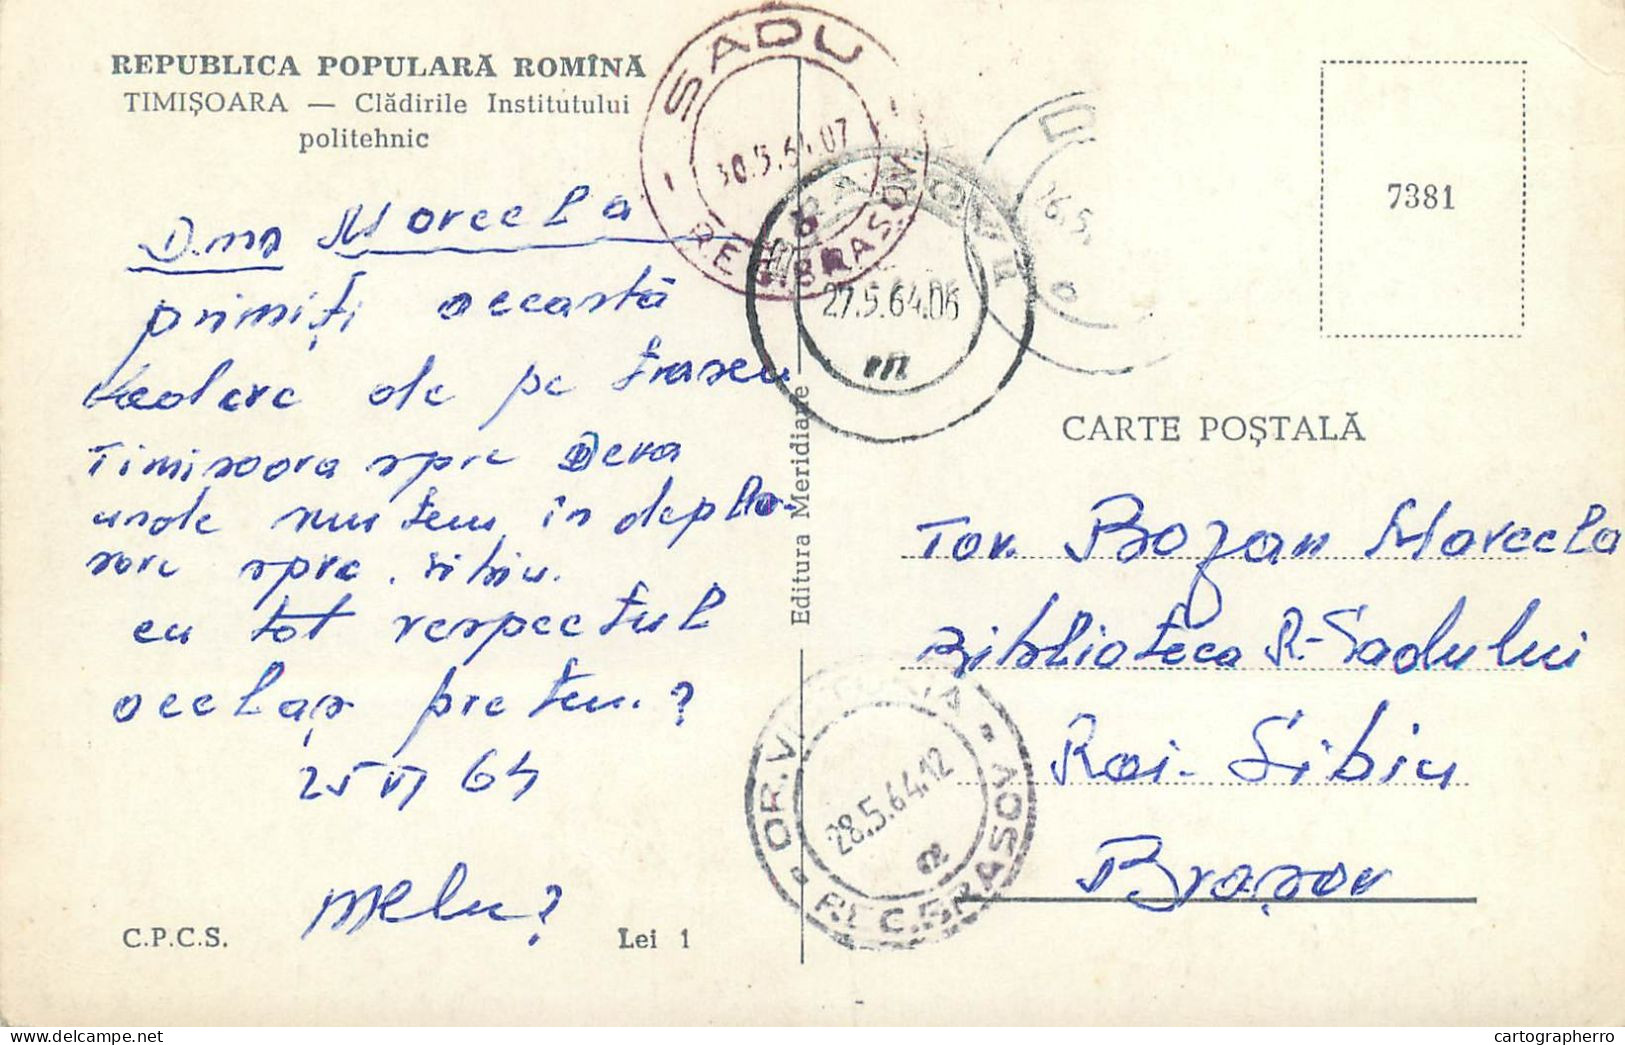 REPUBLICA POPULARĂ ROMÎNĂ
TIMIȘOARA — Clădirile Institutului
politehnic
D.na Marcela
primiți această
vedere de pe traseu
Timisoara spre Deva
unde suntem în depla-
sare spre sibiu.
cu tot respectul
acelaș prieten.
25 VI 64
C.P.C.S.
Lei 1
Editura Meridiane
SADU
30.5.64.07
REG. BRASOV
BRASOV
27.5.64.06
16.5
OR. VICTORIA
28.5.64.12
REG. BRASOV
7381
CARTE POȘTALĂ
Tov. Bozan Marcela
Biblioteca R-Sadului
Rai- Sibiu
Brașov
cartographerro